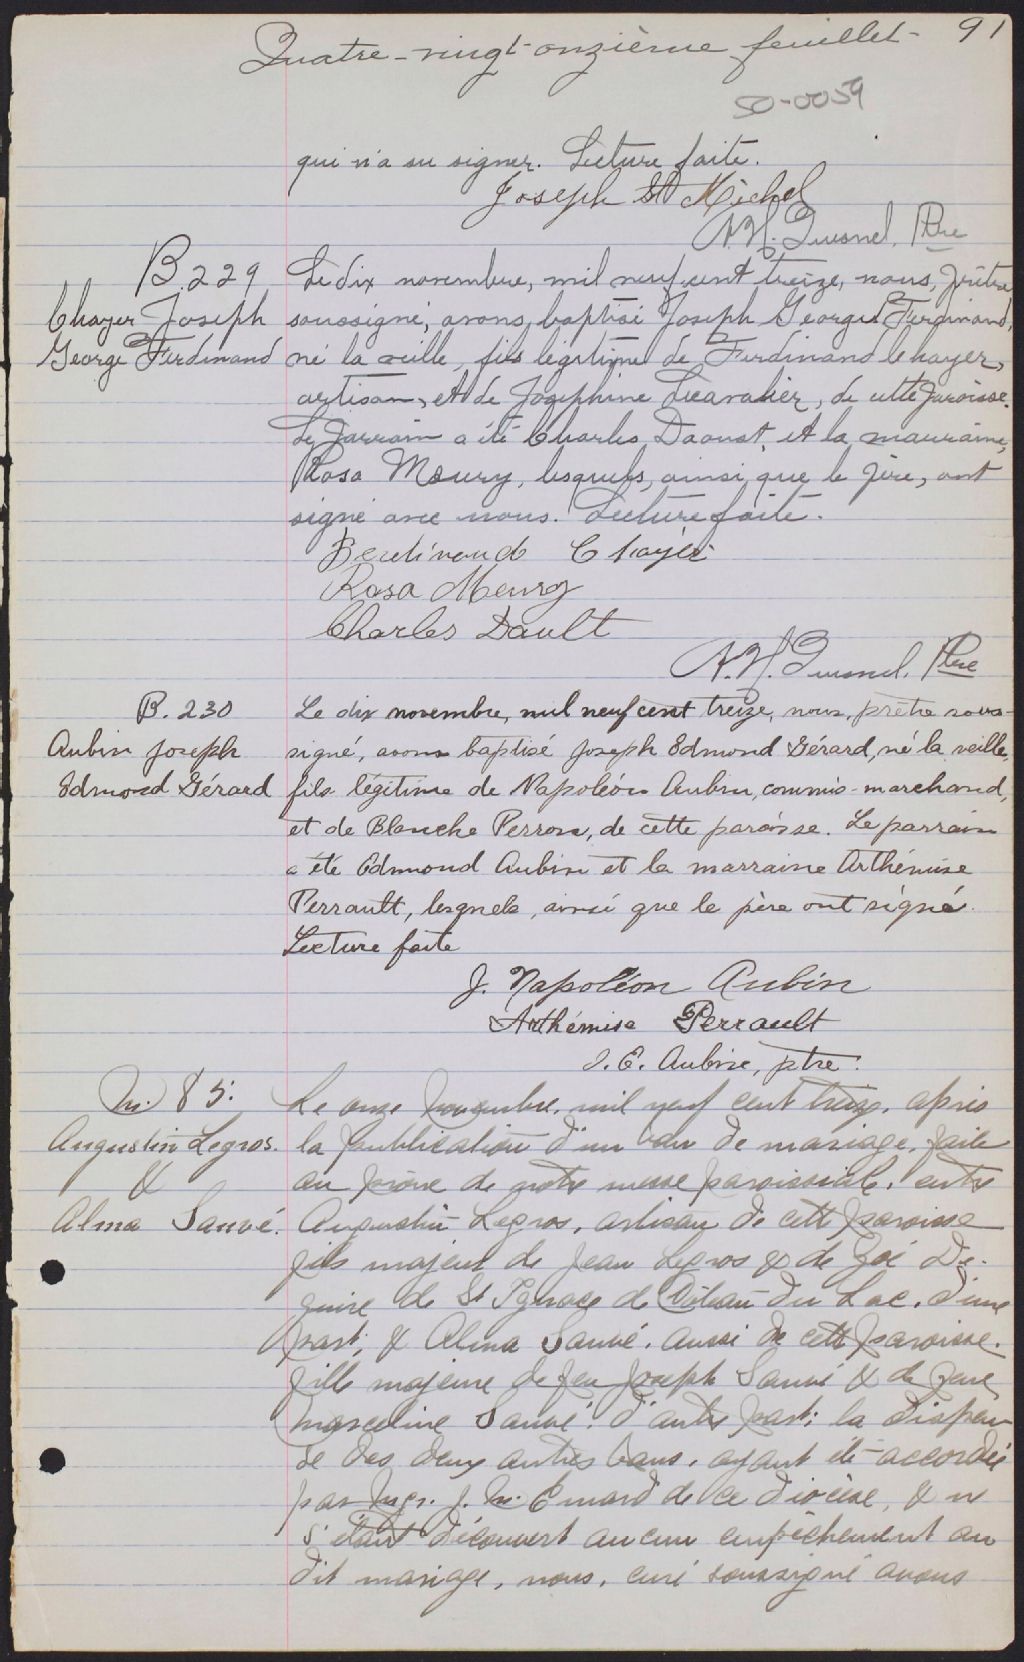 Quatre-vingt-onzième feuillet - 91
50-0059
qui n'a su signer. Lecture faite.
Joseph St Michel
Ptre
B. 229
Chayer Joseph
George Ferdinand
Le dix novembre, mil neuf cent treize, nous, prêtre
soussigné, avons baptisé Joseph George Ferdinand,
né la veille, fils légitime de Ferdinand Chayer,
artisan, et de Josephine Lecavalier, de cette paroisse.
Le parrain a été Charles Daoust, et la marraine,
Rosa Meury, lesquels, ainsi que le père, ont
signé avec nous. Lecture faite.
Ferdinand Chayer
Rosa Meury
Charles Dault
Ptre
B. 230
Aubin Joseph
Edmond Gérard
Le dix novembre, mil neuf cent treize, nous, prêtre sous-
signé, avons baptisé Joseph Edmond Gérard, né la veille,
fils légitime de Napoléon Aubin, commis-marchand,
et de Blanche Perron, de cette paroisse. Le parrain
a été Edmond Aubin et la marraine Arthémise
Perrault, lesquels, ainsi que le père ont signé.
Lecture faite
J. Napoléon Aubin
Arthémise Perrault
J. E. Aubin, ptre.
M. 85.
Augustin Legros.
&
Alma Sauvé.
Le onze novembre, mil neuf cent treize, après
la publication d'un ban de mariage, faite
au prône de notre messe paroissiale, entre
Augustin Legros, artisan de cette paroisse
fils majeur de Jean Legros & de Zoé De-
guire de St Ignace de Côteau du Lac, d'une
part; & Alma Sauvé, aussi de cette paroisse.
fille majeure de feu Joseph Sauvé & de feue
Marceline Sauvé, d'autre part; la dispen-
se des deux autres bans, ayant été accordée
par Mgr. J. M. Emard de ce diocèse, & ne
s'étant découvert aucun empêchement au
dit mariage, nous, curé soussigné avons